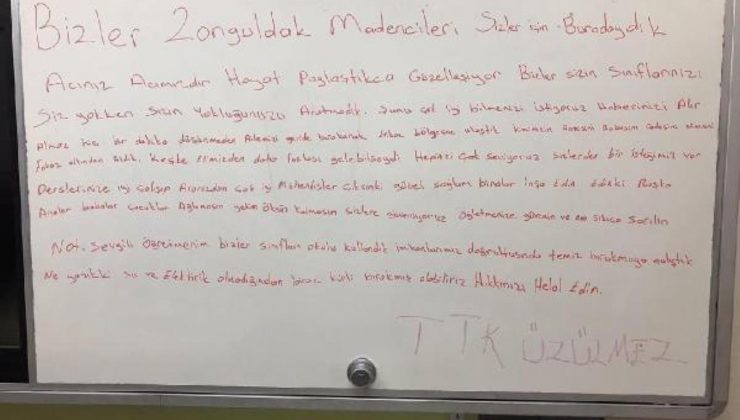 Bizler Zonguldak Madencileri Sizler için Buradaydık
Acınız Acımızdır Hayat Paylaştıkca Güzelleşiyor Bizler sizin Sınıflarınızı
Siz yokken Sizin Yokluğunuzu Aratmadık. Şunu çok iyi bilmenizi istiyoruz Haberinizi Alır
almaz hiç bir dakika düşünmeden Ailemizi geride bırakarak deprem bölgesine ulaştık kiminizin Annesini Babasını Çocuğunu
Enkaz altından aldık. Keşke elimizden daha fazlası gelebilseydi Hepinizi Çok Seviyoruz sizlerden bir isteğimiz var
Derslerinize iyi çalışın Aranızdan çok iyi Mühendisler Çıksınki güzel sağlam binalar inşa Edin Edinki Başka
Analar babalar Çocuklar Ağlamasın yetim Öksüz Kalmasın sizlere güveniyoruz Öğretmenize güvenin ve sıkıca Sarılın
Not. Sevgili Öğretmenim bizler sınıfları okulu kullandık imkanlarımız doğrultusunda temiz bırakmaya çalıştık
Ne yazıkki su ve Elektrik olmadığından biraz kirli bırakmış olabiliriz Hakkınızı Helal Edin.
TTK ÜZÜLMEZ